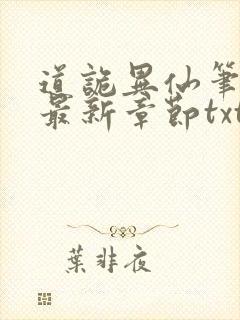 道詭異仙筆
最新章節txt
葉非夜